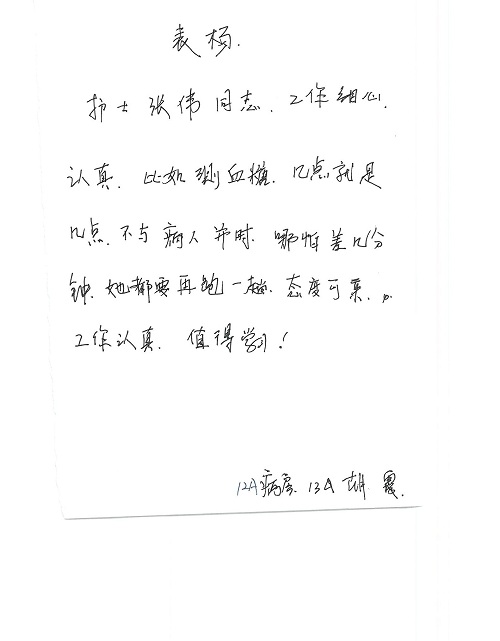 表杨.
护士张伟同志.工作细心.
认真.比如测血糖.几点就是
几点.不与病人并时.哪怕差几分
钟.她都要再跑一趟.态度可亲.
工作认真.值得学习!
12A病房 13A 胡 霞.